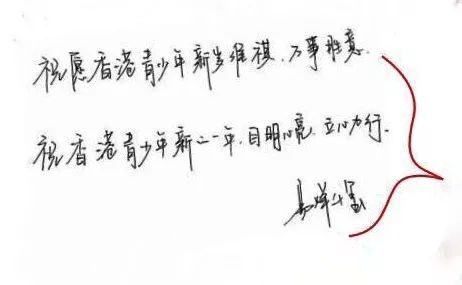 祝愿香港青少年新岁维祺,万事胜意.
祝香港青少年新的一年,目明心亮,立心力行.
易烊千玺